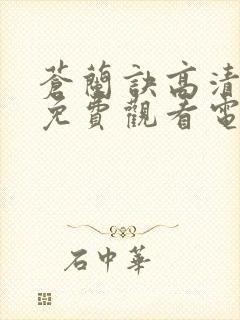 蒼蘭訣高清
免費觀看電
石中華